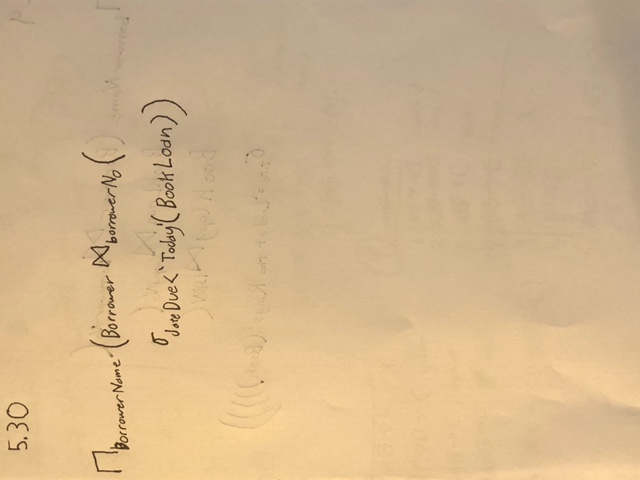 5.30
∏BorrowerName(Borrower ⋈borrowerNo(
σdateDue<'Today'(BookLoan))